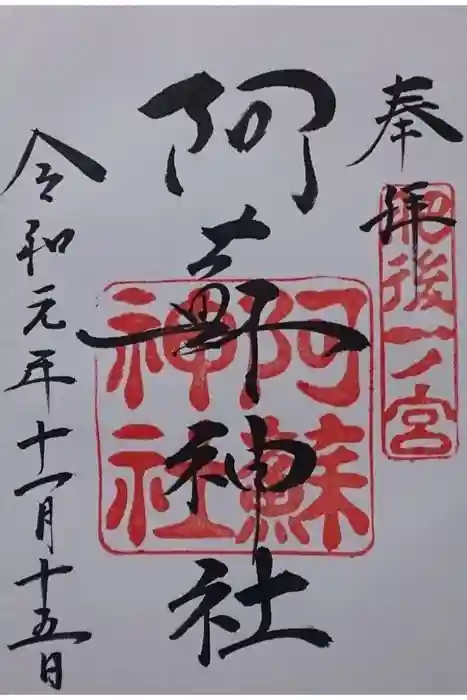 奉拝
肥後一ノ宮
阿蘇神社
阿蘇
神社
令和元年十一月十五日